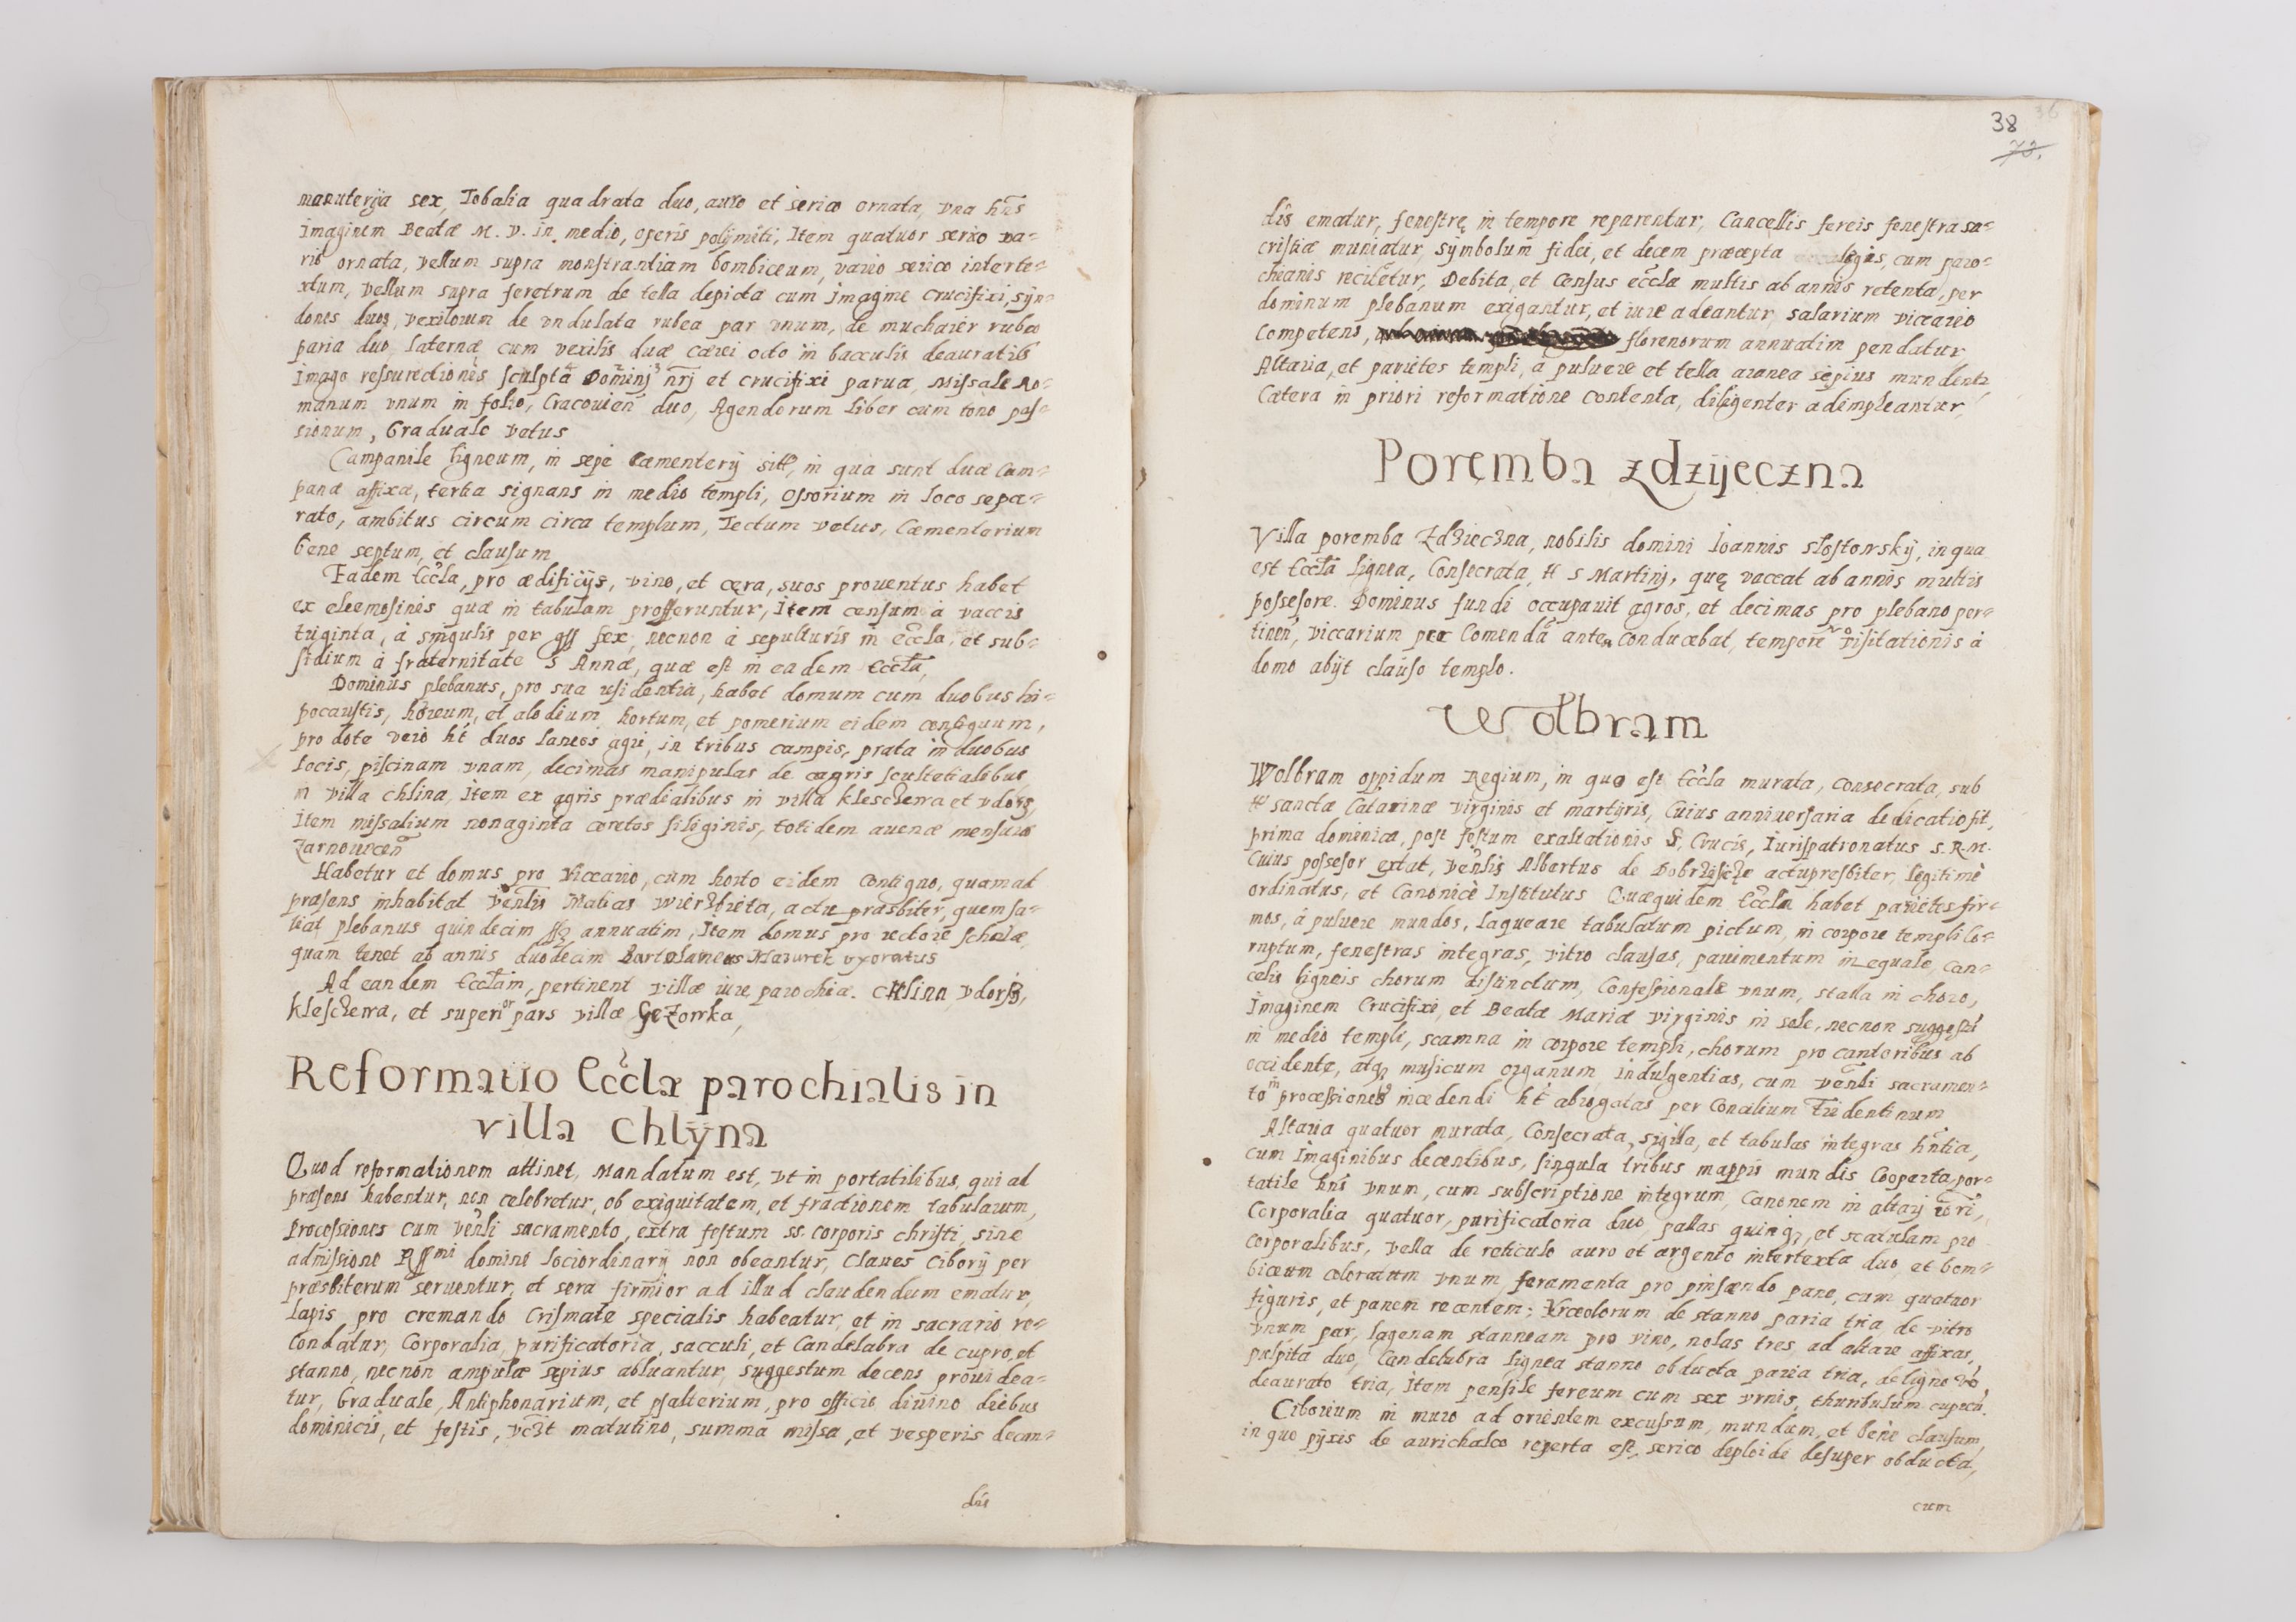 manuterija sex, Tobalia quadrata duo, auro et serico ornata, vna hñs
imaginem Beatæ M. V. in medio, operis polijmiti, Item quatuor serico va-
rio ornata, vellum supra monstrantiam bombiceum, vario serico interte-
xtum, vellum supra feretrum de tella depicta cum imagine crucifixi, sijn-
dones duos, vexilorum de vndulata rubea par vnum, de muchaier rubeo
paria duo, laternæ cum vexilis duæ cærei octo in bacculis deauratis
imago ressurectionis sculpta Dominj nr̃j et crucifixi parua, Missale Ro-
manum vnum in folio, Cracouień duo, Agendorum liber cum tono pas-
sionum, Graduale vetus
Campanile ligneum, in sepe cæmenterij, in qua sunt duæ Cam-
panæ affixæ, tertia signans in medio templi, ossorium in loco sepa-
rato, ambitus circum circa templum, Tectum vetus, Cæmenterium
bene septum, et clausum
Eadem Eccla, pro ædificijs, vino, et cęra, suos prouentus habet
ex eleemosinis quæ in tabulam profferuntur, Item censum à vaccis
triginta, à singulis per gss sex, necnon à sepulturis in eccla, et sub-
sidium à fraternitate S Annæ, quæ est in eadem Eccla,
Dominus plebanus, pro sua residentia, habet domum cum duobus hi-
pocaustis, horeum, et alodium, hortum, et pomerium eidem contiguum,
pro dote vero ht duos laneos agri, in tribus campis, prata in duobus
locis, piscinam vnam, decimas manipulas de agris scultetialibus
in villa chlina, Item ex agris prædialibus in villa Klesczewa et vdorz,
Item missalium nonaginta coretos siliginis, totidem auenæ mensuræ
Zarnouiceń
Habetur et domus pro Viccario, cum horto eidem contiguo, quam ad
præsens inhabitat Venlis Matias Wierzbieta, actu præsbiter, quem sa-
tiat plebanus quindecim annuatim, Item domus pro rectore scholæ,
quam tenet ab annis duodecim Bartolameus Mazurek vxoratus
Ad eandem Ecclam, pertinent villæ iure parochiæ. Chlina vdorz,
Klesczewa, et superior pars villæ Gezowka,
Reformatio Ecclæ parochialis in
villa Chlÿna
Quod reformationem attinet, Mandatum est, vt in portatilibus, qui ad
præsens habentur, non celebretur, ob exiguitatem, et fractionem tabularum,
Processiones cum Venli sacramento, extra festum ss. corporis christi, sine
admissione Rssmi domini lociordinarij non obeantur, Claues Ciborij per
præsbiterum seruentur, et sera firmior ad illud claudendum ematur,
Lapis pro cremando Crismate specialis habeatur, et in sacrario re-
condatur, Corporalia, purificatoria, sacculi, et Candelabra de cupro, et
stanno, necnon ampulæ sępius abluantur, suggestum decens prouidea-
tur, Graduale, Antiphonarium, et psalterium, pro officio diuino diebus
dominicis, et festis, vczt matutino, summa missa, et vesperis decan-
dis
38
70.
dis ematur, fenestrę in tempore reparentur, Cancellis fereis fenestra sa-
cristiæ muniatur, sÿmbolum fidei, et decem præcepta legis, cum paro-
cheanis recitetur, Debita, et Census eccla multis ab annis retenta, per
dominum plebanum exigantur, et iure adeantur, salarium viccario
competens, florenorum annuatim pendatur,
Altaria, et parietes templi, à puluere et tella aranea sępius mundentr
Cætera in priori reformatione contenta, diligenter adimpleantur,
Poremba zdzijeczna
Villa poremba Zdzieczna, nobilis domini Ioannis slostowskÿ, in qua
est Eccla lignea, Consecrata, tt S Martinj, quę vaccat ab annis multis
possesore. Dominus fundi occupauit agros, et decimas pro plebano per-
tineñ, viccarium pro Comenda antea conducebat, tempore visitationis à
domo abijt clauso templo.
Wolbram
Wolbram oppidum Regium, in quo est Eccla murata, Consecrata, sub
tt sanctæ Catarinæ virginis et martÿris, Cuius anniuersaria dedicatio fit,
prima dominica, post festum exaltationis S. Crucis, Iurispatronatus S. R. M.
Cuius possesor extat, Venlis Albertus de Dobrzischze actupresbiter, legitimè
ordinatus, et Canonicè Institutus Quæquidem Eccla habet parietes fir-
mos, à puluere mundos, laqueare tabulatum pictum, in corpore templi lo-
ruptum, fenestras integras, vitro clausas, pauimentum in equale, can-
celis ligneis chorum distinctum, Confessionale vnum, stalla in choro,
Imaginem Crucifixi, et Beatæ Mariæ virginis in sole, necnon suggestũ
in medio templi, scamna in corpore templi, chorum pro cantoribus ab
occidente, atq musicum organum, indulgentias, cum venli sacramen-
to in processiones incedendi ht abrogatas per Concilium Tridentinum
Altaria quatuor murata, Consecrata, sigilla, et tabulas integras hñtia,
cum Imaginibus decentibus, singula tribus mappis mundis Cooperta, por-
tatile hñs vnum, cum subscriptione integrum, Canonem in altarj
Corporalia quatuor, purificatoria duo, pallas quinq, et scatulam pro
Corporalibus, vella de reticulo auro et argento intertexta duo, et bom-
biceum coloratum vnum, feramenta pro pinsendo pane, cum quatuor
figuris, et panem recentem; Vrceolorum de stanno paria tria, de vitro
vnum par, lagenam stanneam pro vino, nolas tres, ad altare affixas,
pulpita duo, Candelabra lignea stanno obducta paria tria, de ligno vo,
deaurato tria, Item pensile fereum cum sex vrnis, thuribulum cupreũ.
Ciborium in muro ad orientem excussum, mundum, et bene clausum,
in quo pÿxis de aurichalco reperta est, serico deploide desuper obducta,
cum